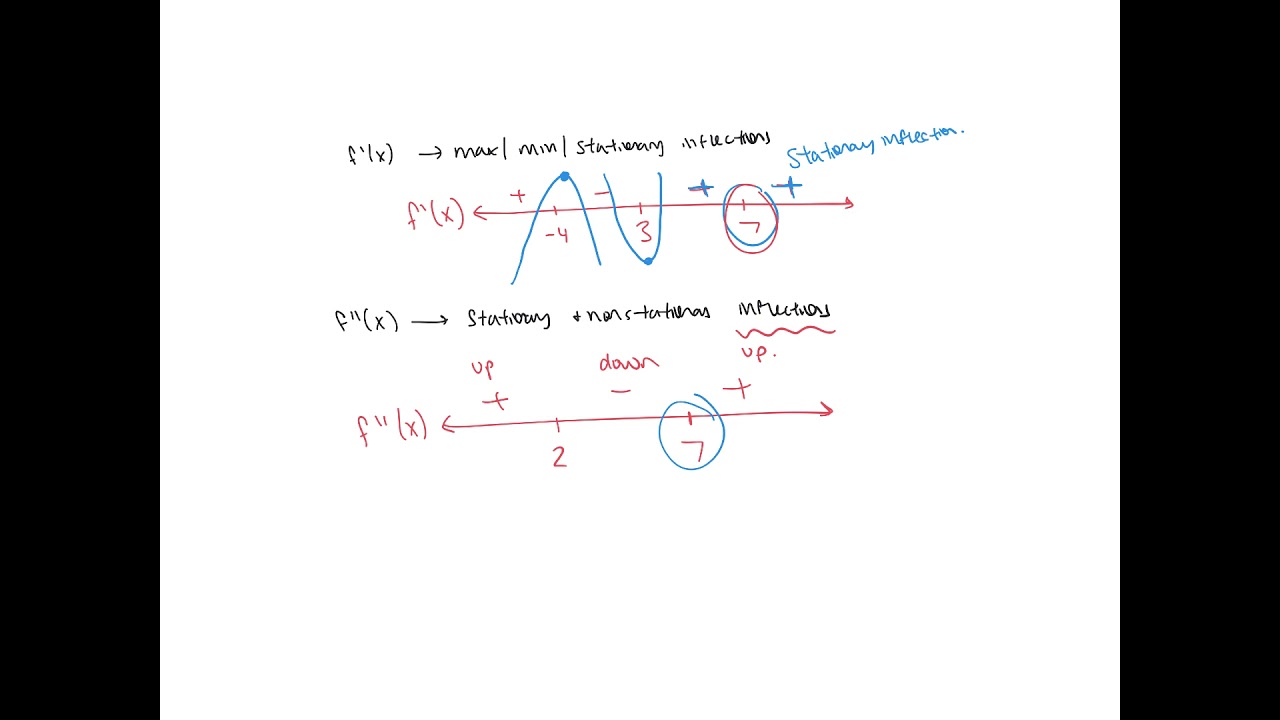 f'(x) → max/ min/ stationary inflections
Stationary inflection.
f'(x) + -4 - 3 + 7 +
f''(x) → Stationary + nonstationary inflections
up down up.
+ - +
f''(x) 2 7